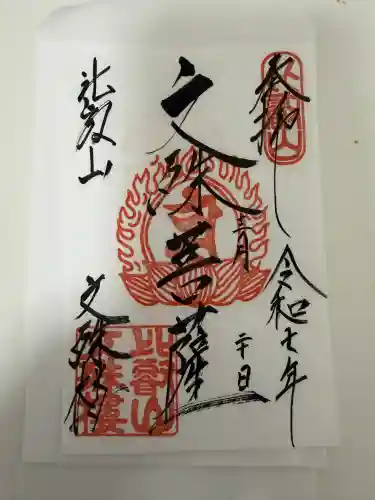 奉拝
令和七年
三月
二十日
文殊菩薩
比叡山
文殊楼
比叡山
文殊樓